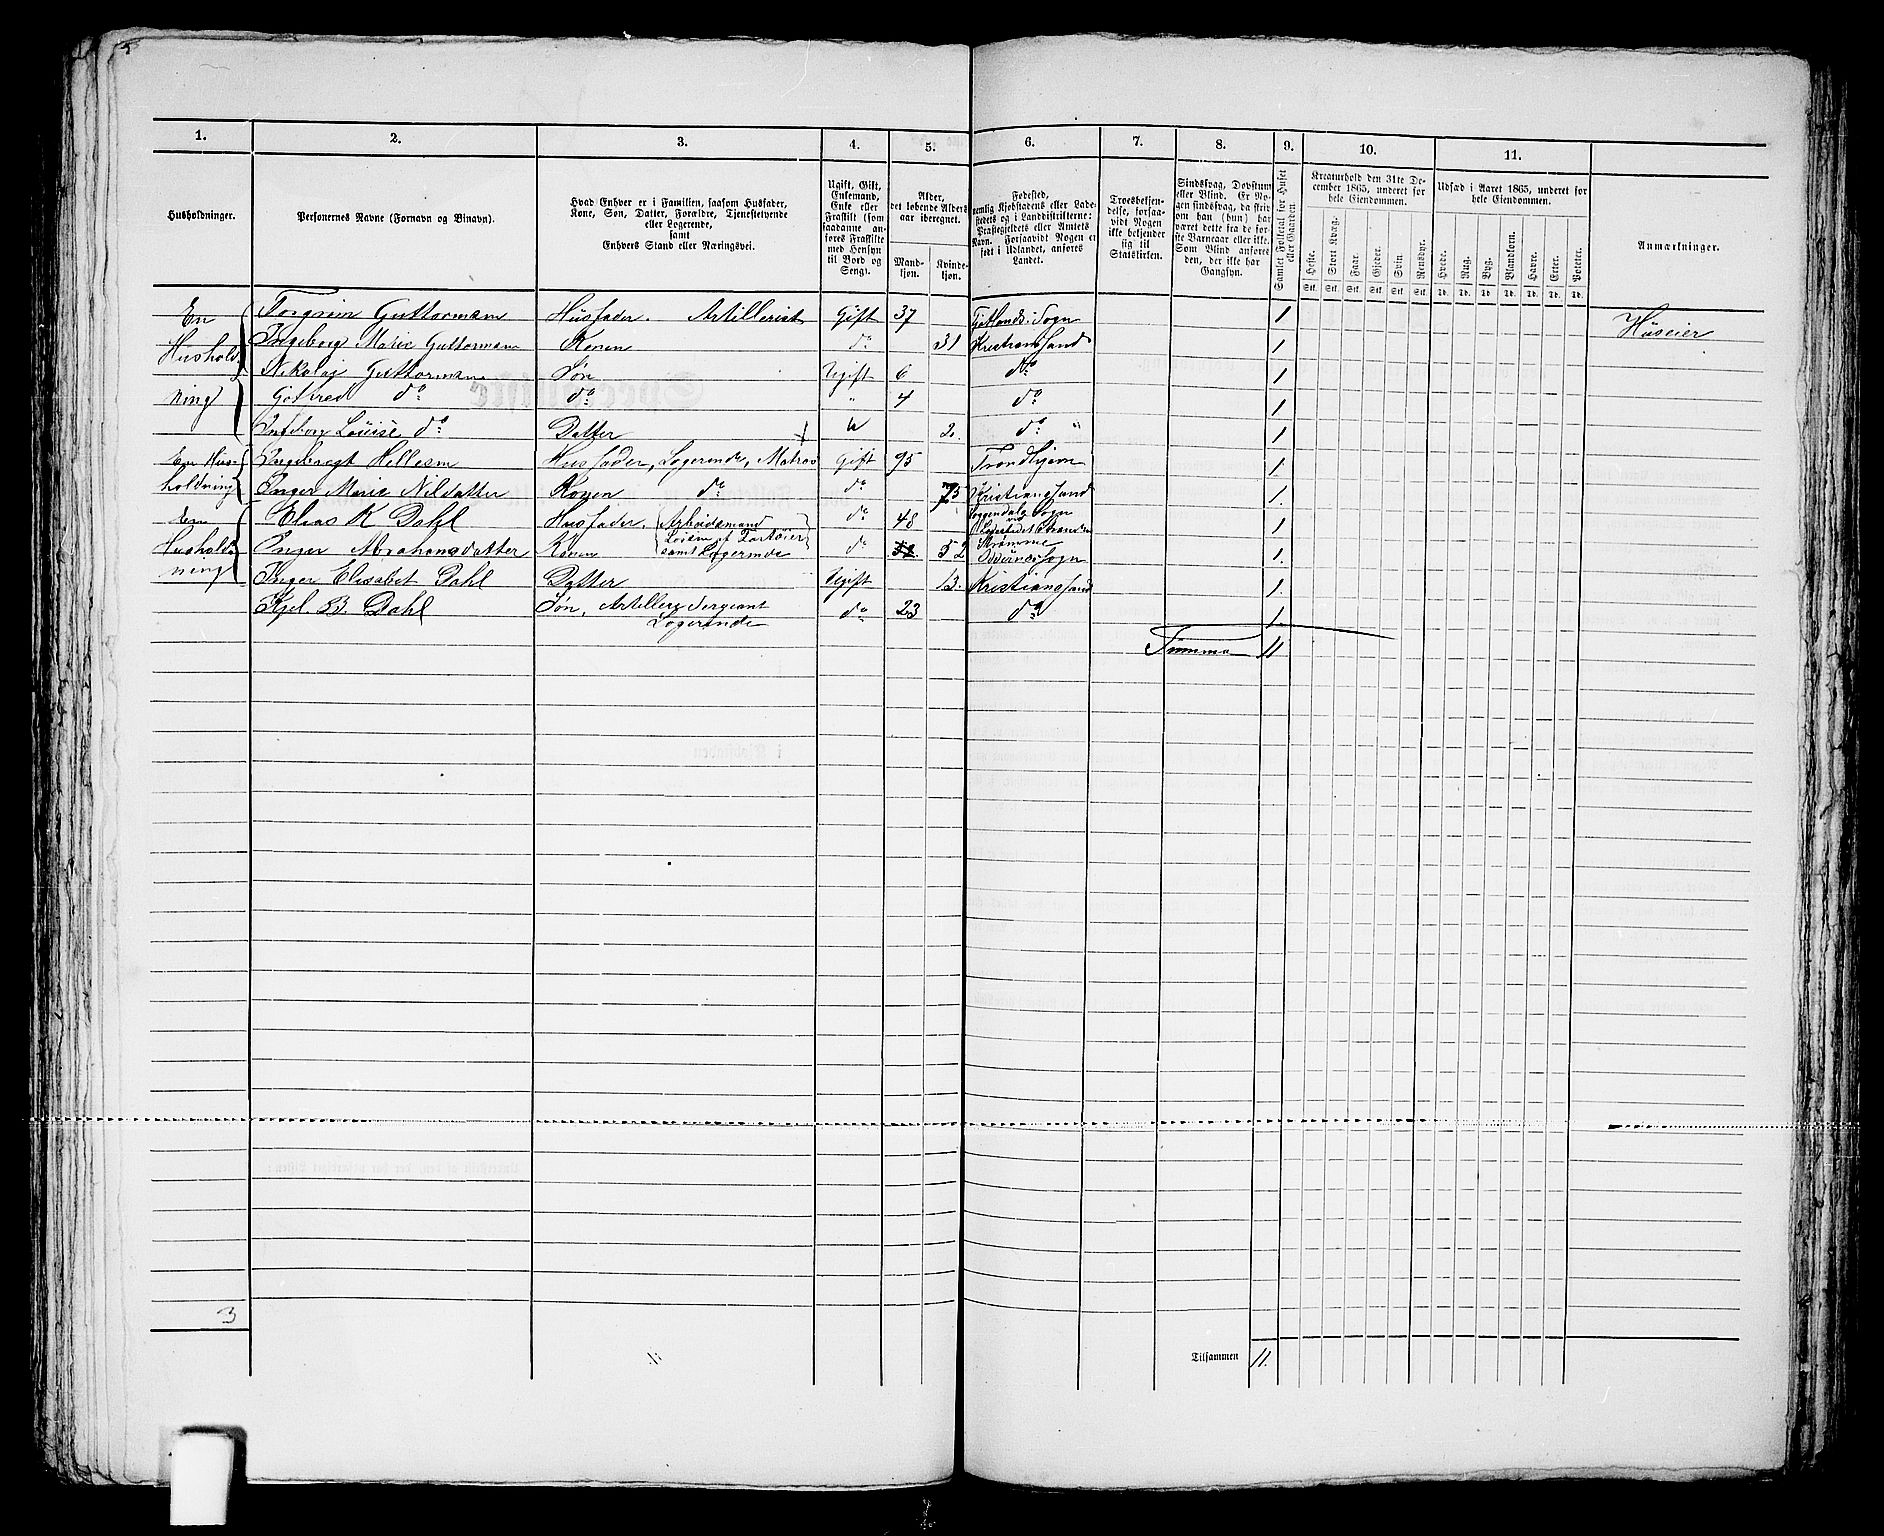 1. 2. 3. 4. 5. 6. 7. 8. 9. 10. 11.
Husholdninger.
Personernes Navne (Fornavn og Binavn).
Hvad Enhver er i Familien, saasom Husfader,
Kone, Søn, Datter, Forældre, Tjenestetyende
eller Logerende,
samt
Enhvers Stand eller Næringsvei.
Ugift, Gift,
Enkemand,
Enke eller
Fraskilt (som
saadanne an-
føres Fraskilte
med Hensyn
til Bord og
Seng).
Alder,
det løbende Alders-
aar iberegnet.
Mand-
kjøn.
Kvinde-
kjøn.
Fødested,
nemlig Kjøbstadens eller Lade-
stedets og i Landdistrikterne:
Præstegjeldets eller Amtets
Navn. Forsaavidt Nogen er
født i Udlandet, anføres
Landet.
Troesbekjen-
delse, forsaa-
vidt Nogen
ikke bekjender
sig til
Statskirken.
Sindssvag, Døvstum
eller Blind. Er No-
gen sindssvag, da skri-
ves om han (hun) har
været dette fra de før-
ste Barneaar eller ikke.
Som Blind anføres
den, der ikke har
Gangsyn.
Samlet Folketal for Huset
eller Gaarden
Kreaturhold den 31te De-
cember 1865, underet for
hele Eiendommen.
Heste. Stort Kvæg. Faar. Gjeder. Svin. Rensdyr.
Stk. Stk. Stk. Stk. Stk. Stk.
Udsæd i Aaret 1865, underet for
hele Eiendommen.
Hvede. Rug. Byg. Blandkorn. Havre. Erter. Poteter.
Td. Td. Td. Td. Td. Td. Td.
Anmærkninger.
En Guttormsen Husfader. Artillerist Gift 37 Sogn 1 Huseier
Hushold Ingeborg Marie Guttormsen Konen do 31 Kristianssand 1
Nikolai Guttormsen Søn Ugift 6 do 1
ning do do " 4 do 1
Louise do Datter 2. do " 1
En Hus- Ingebregt Hellesen Husfader, Logerende, Matros Gift 95 Trondhjem 1.
holdning Inger Marie Nilsdatter Konen do do 75 Kristianssand 1.
En Elias K Dahl Husfader. Arbeidsmand do 48 Sogn 1
Hushold Inger Abrahamsdatter Konen samt Logerende do 52 Oddernæs Sogn 1.
ning Inger Elisabet Dahl Datter Ugift 13. Kristianssand 1.
B. Dahl Søn, Artilleri Sergeant do 23 do 1.
Logerende
Summa 11
3
Tilsammen 11.